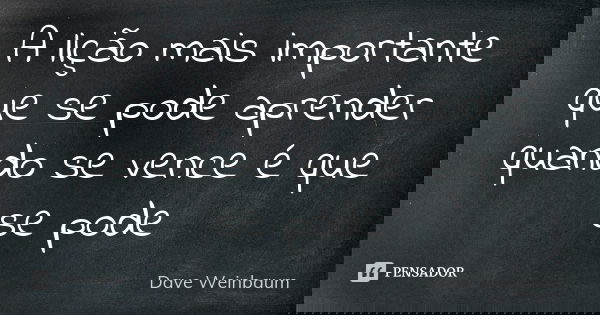 A lição mais importante
que se pode aprender
quando se vence é que
se pode
Dave Weinbaum
PENSADOR